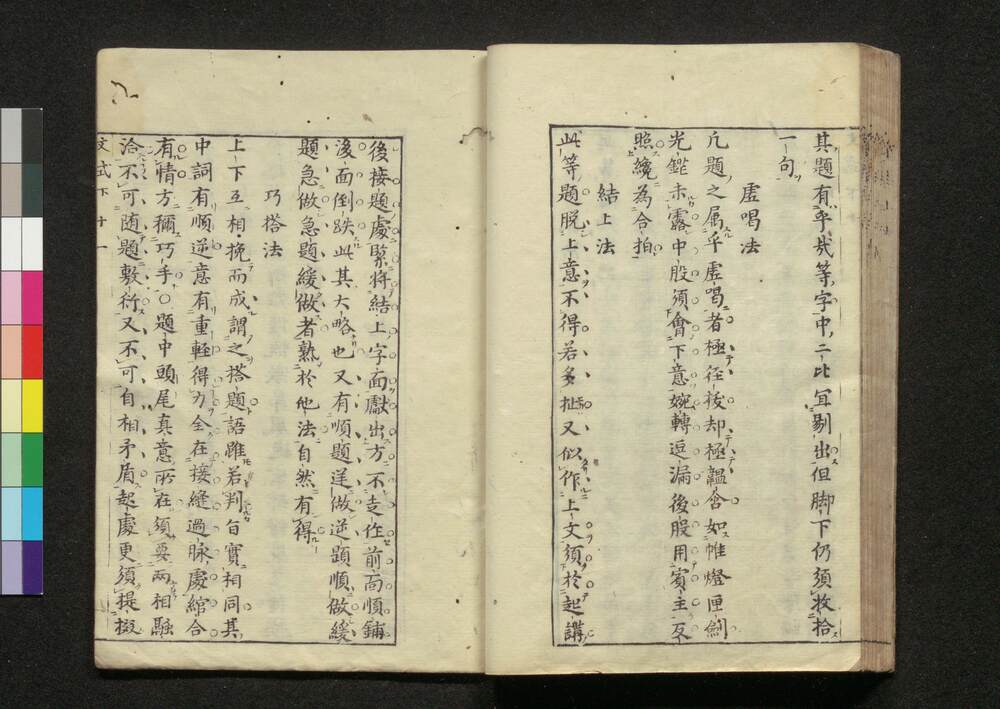 其題有乎哉等字中二比宜剔出但脚下仍須收拾
一句
虚唱法
凢題之属乎虚唱者極徑捷却極韞含如帷燈匣劍
光鋩未露中股須會下意婉轉逗漏後股用賓主互
照纔為合拍
結上法
此等題脱上意不得若多扯又似作上文須於起講
後接題處緊將結上字面獻出方不走作前面順鋪
後面倒跌此其大略也又有順題逆做逆題順做緩
題急做急題緩做者熟於他法自然有得
巧搭法
上下互相挽而成謂之搭題語雖若判旨實相同其
中詞有順逆意有重輕得力全在接縫過脉處綰合
有情方稱巧手○題中頭尾真意所在須要兩相融
洽不可随題敷衍又不可自相矛盾起處更須提掇
文式下 十一